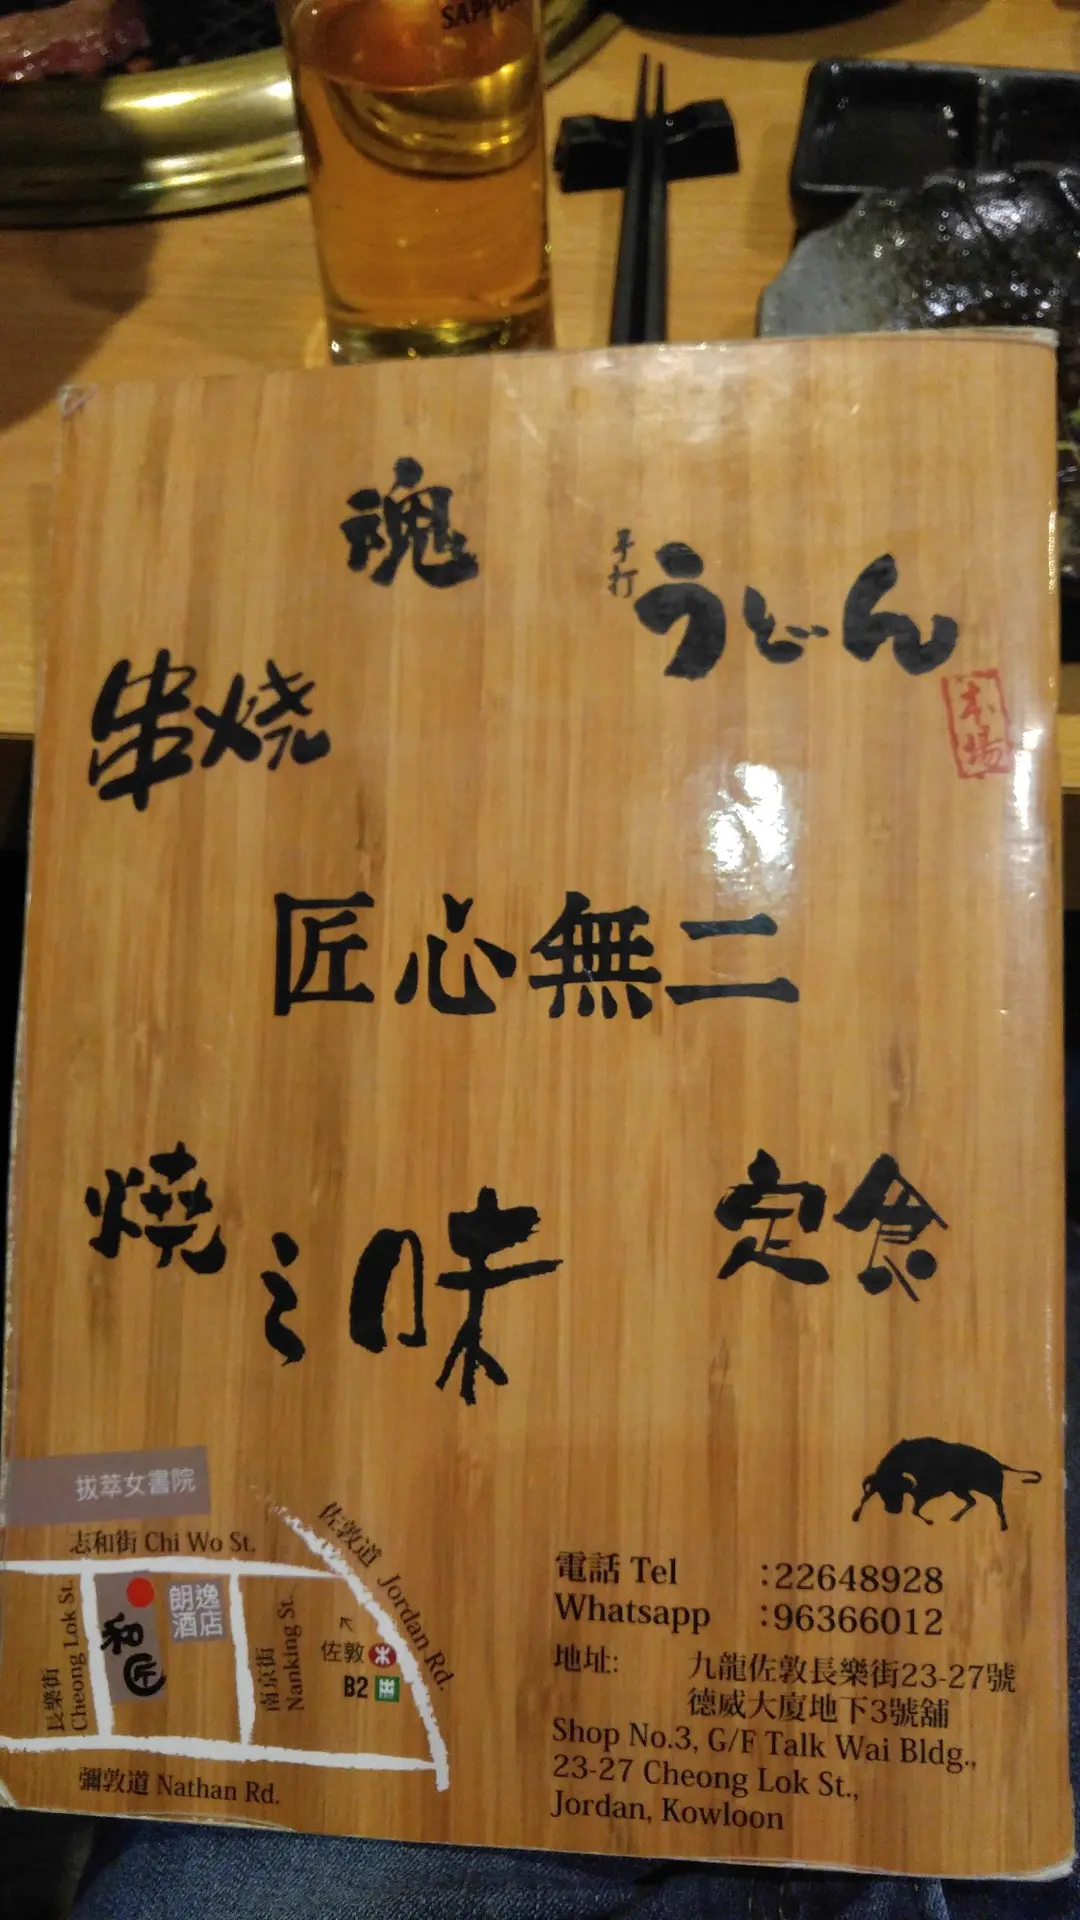 SAPPO
魂
手打
うどん
本場
串焼
匠心無二
燒
之味
定食
拔萃女書院
志和街 Chi Wo St.
佐敦道 Jordan Rd.
長樂街
Cheong Lok St.
和匠
朗逸
酒店
南京街
Nanking St.
佐敦
B2
彌敦道 Nathan Rd.
電話 Tel :22648928
Whatsapp :96366012
地址: 九龍佐敦長樂街23-27號
德威大廈地下3號舖
Shop No.3, G/F Talk Wai Bldg.,
23-27 Cheong Lok St.,
Jordan, Kowloon